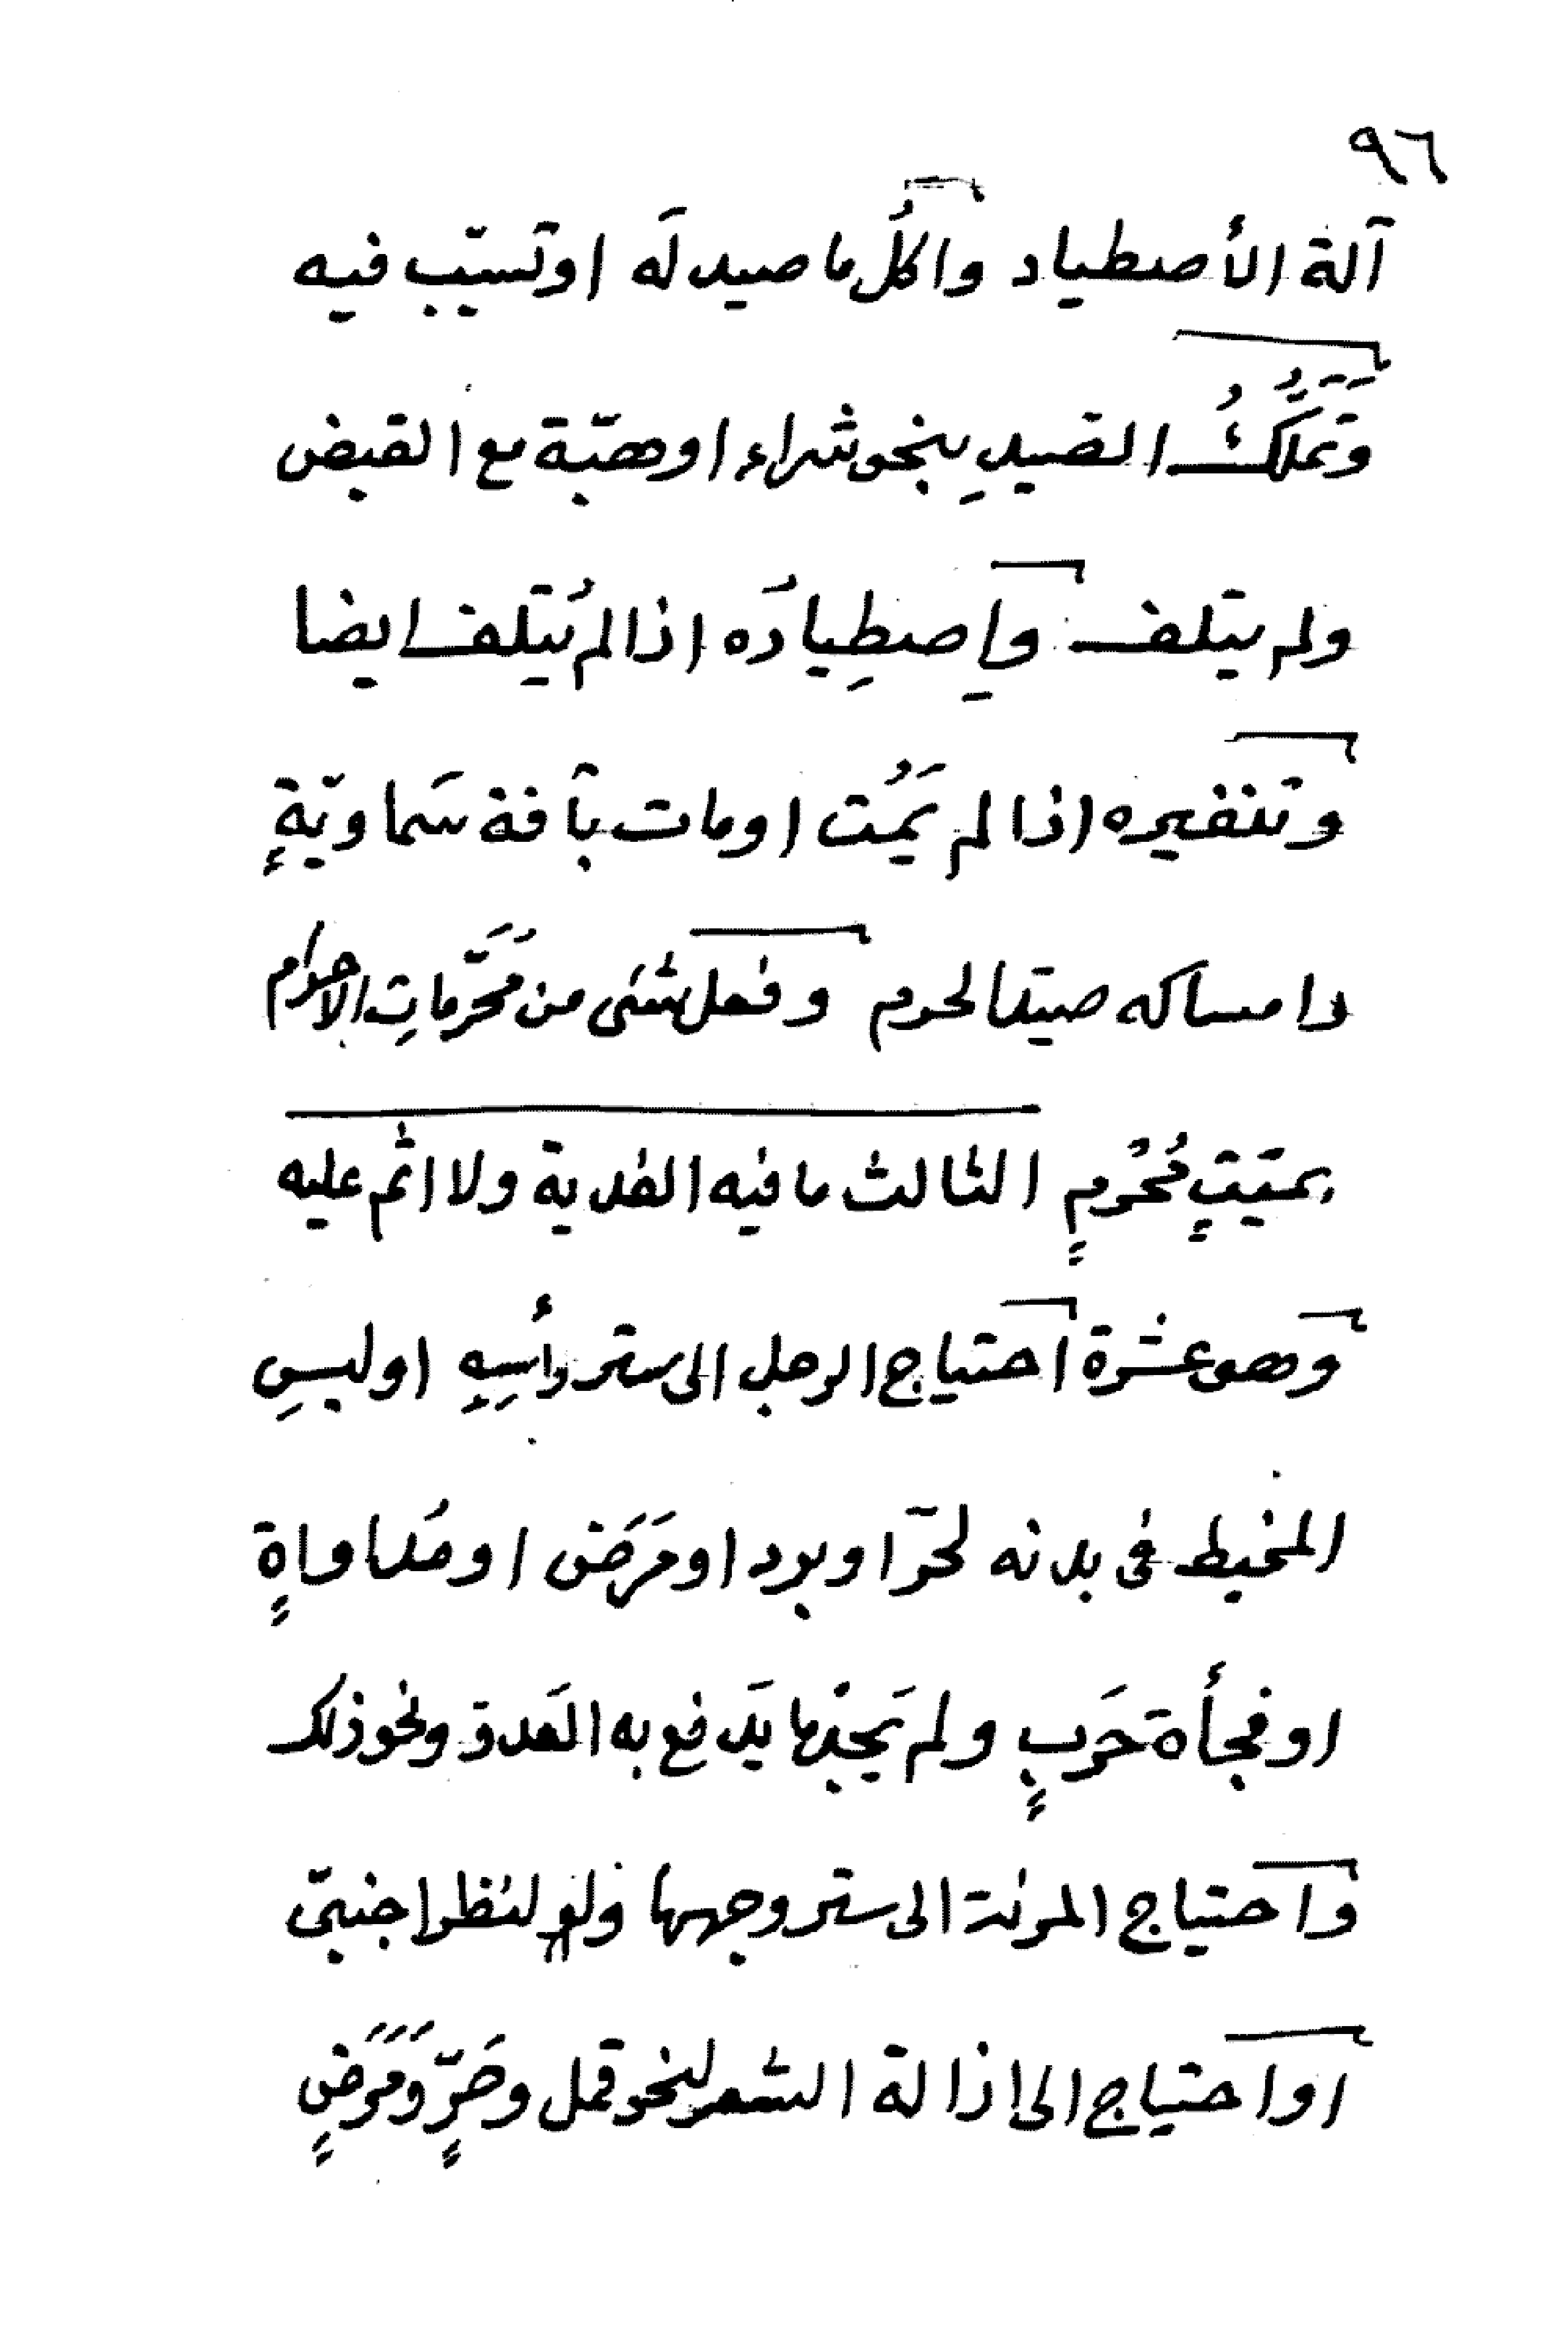 ٩٦
آلة الأصطياد واكلُ ما صيد لَه اوتسبّب فيه
وَتَمَلُّكُ الصّيدِ بنحو شراء اوهبّة مع القبض
ولم يتلف وإصطِيادُه اذا لم يُتلف ايضا
وتنفيره اذا لم يَمُت اومات بآفة سَماويّةٍ
وامساكه صيدالحرم وفعل شئى من مُحَرَّماتِ الاحرام
بميّتٍ مُحْرمٍ الثالث ما فيه الفدية ولا اثم عليه
وهو عشرة احتياج الرجل الى ستر رأسِهِ اولبسِ
المخيط فى بدنه لحرّ اوبرد اومَرَض اومُداواةٍ
اوفجأة حَربٍ ولم يَجِدْ ما يَدفع به العَدوّ ونحوذلك
واحتياج المرئة الى ستر وجهها ولو لنظر اجنبىّ
اواحتياج الى ازالة الشعر لنحو قمل وحَرٍّ وَمَرَضٍ